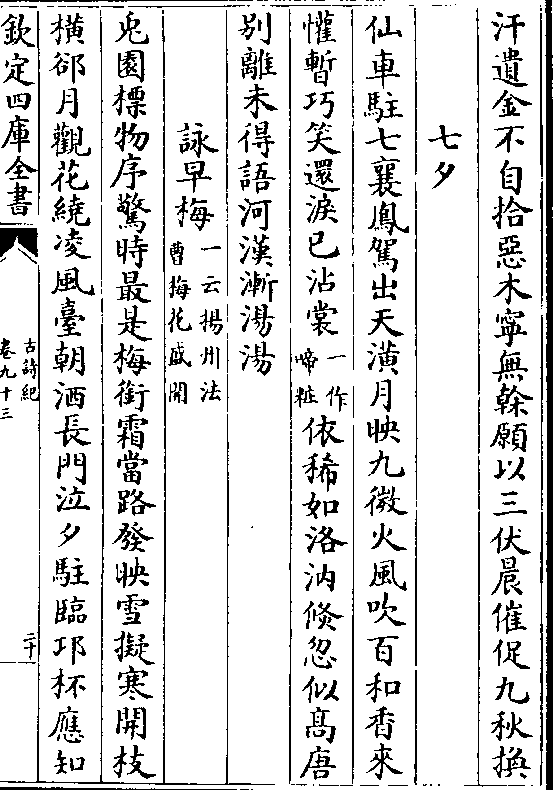 汗遺金不自拾惡木寧無榦願以三伏晨催促九秋換
七夕
仙車駐七襄鳳駕出天潢月映九微火風吹百和香來
懽暫巧笑還淚已沾裳一作啼粧依稀如洛汭倐忽似髙唐
別離未得語河漢漸湯湯
詠早梅一云揚州法曹梅花盛開
兎園標物序驚時最是梅銜霜當路發映雪擬寒開枝
橫郤月觀花繞凌風臺朝洒長門泣夕駐臨邛杯應知
欽定四庫全書
古詩紀
卷九十三
二十